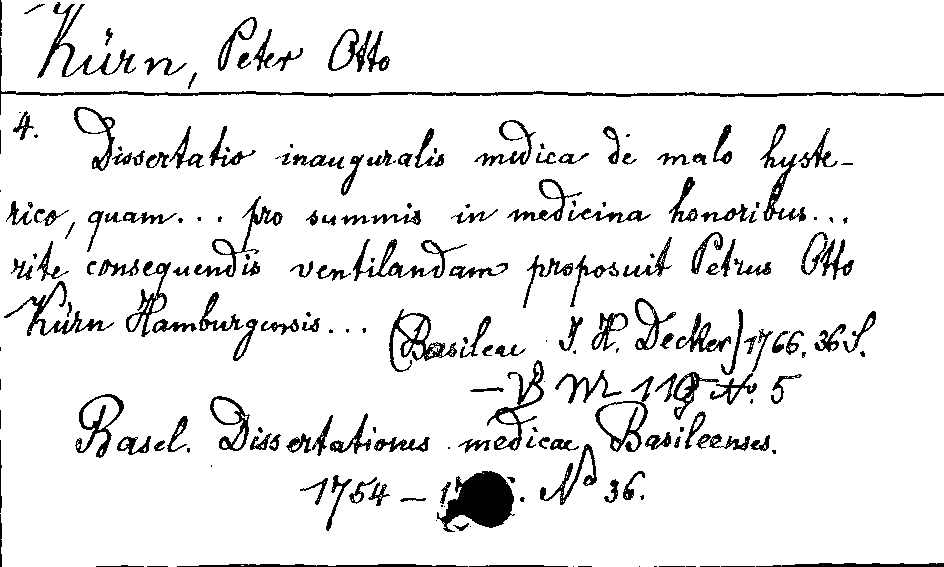 Kürn, Peter Otto
4. Dissertatio inauguralis medica de malo hyste-
rico, quam... pro summis in medicina honoribus...
rite consequendis ventilandam proposuit Petrus Otto
Kürn Hamburgensis...
(Basileae J. H. Decker) 1766. 36 S.
— No. 5
Basel. Dissertationes medicae Basileenses.
1754 – No 36.